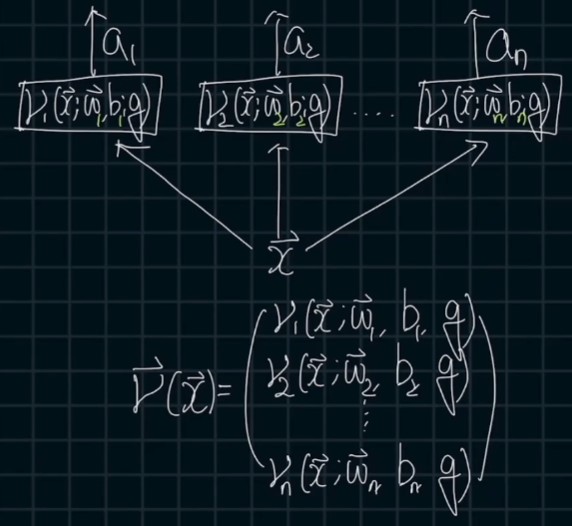 a₁ a₂ aₙ
ν₁(x⃗;w⃗₁,b₁;g) ν₂(x⃗;w⃗₂,b₂;g) .... νₙ(x⃗;w⃗ₙ,bₙ;g)
x⃗
ν₁(x⃗;w⃗₁, b₁, g)
ν⃗(x⃗)= ν₂(x⃗;w⃗₂, b₂ g)
⋮
νₙ(x⃗;w⃗ₙ bₙ g)